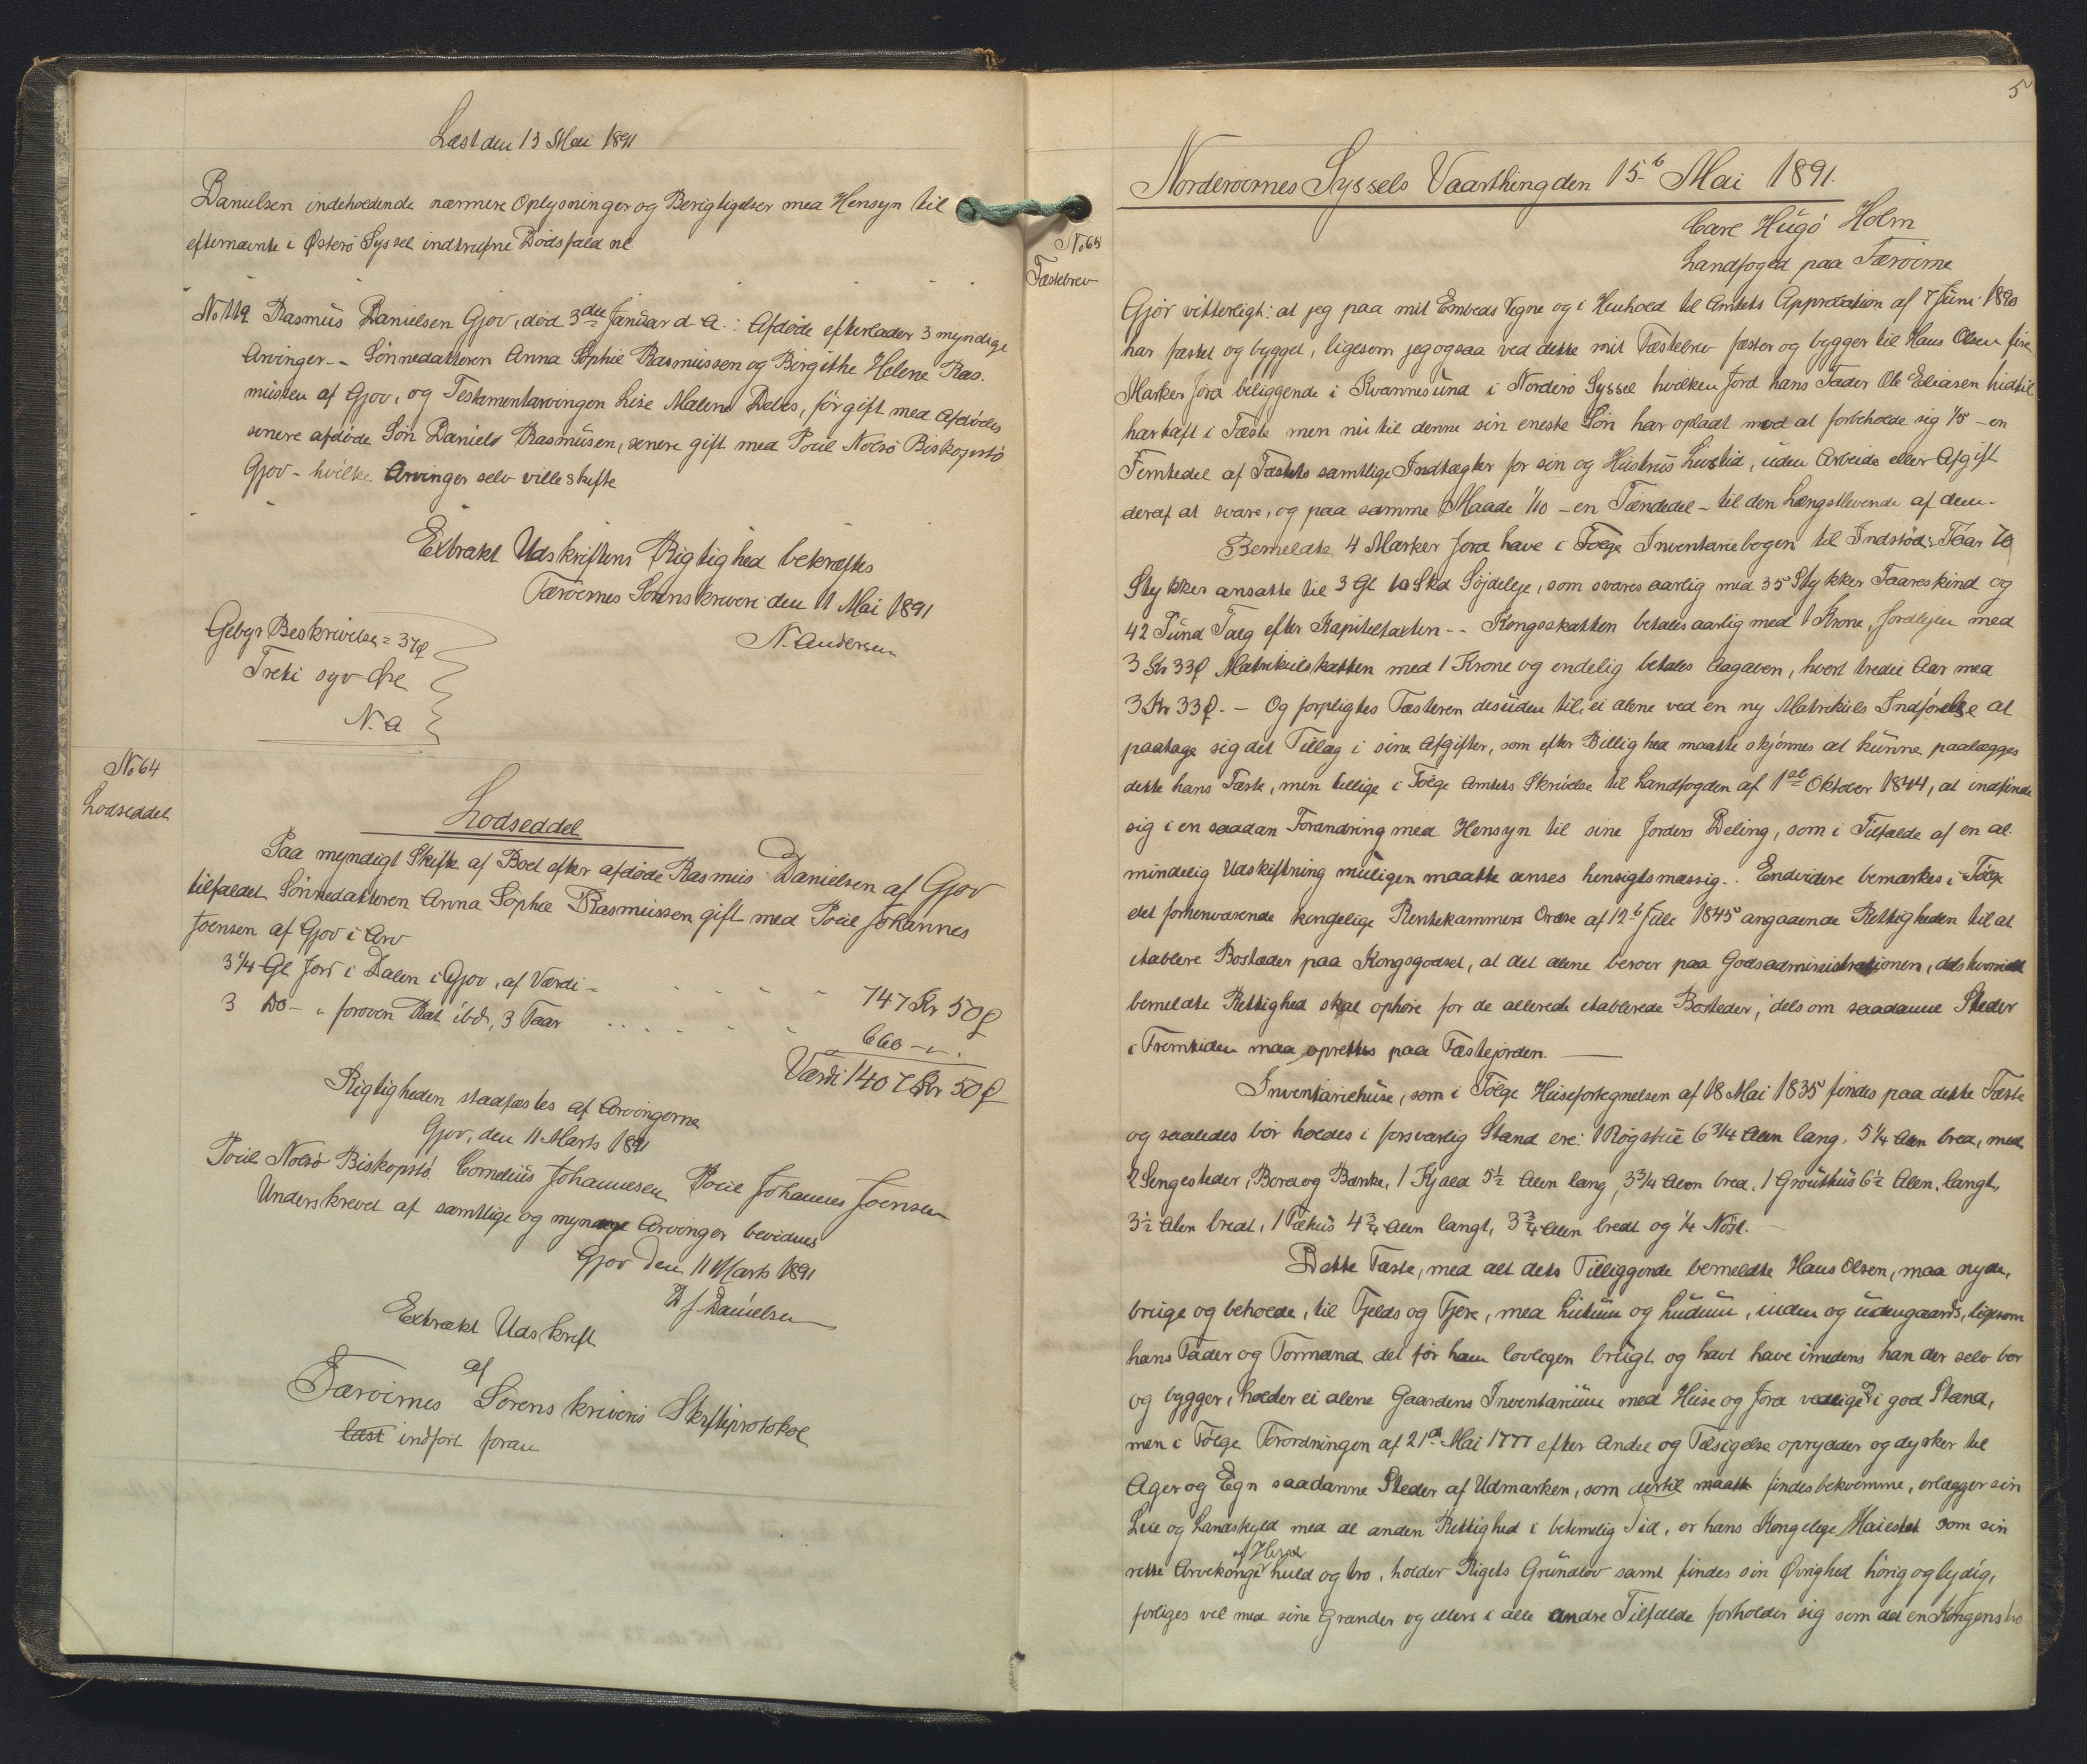 Læst den 13 Mai 1891
Danielsen indeholdende nærmere Oplysninger og Berigtigelser med Hensyn til
efternævnte i Østerö Syssel indtrufne Dödsfald nl.
No 119. Rasmus Danielsen Gjov, död 3die Januar d. A.: Afdöde efterlader 3 myndige
Arvinger -- Sönnedatteren Anna Sophie Rasmussen og Birgithe Helene Ras-
mussen af Gjov, og Testamentarvingen Lise Malene Debes, för gift med Afdödes
senere afdöde Sön Daniel Rasmusen, senere gift med Poul Nolsö Biskopstö
Gjov - hvilke Arvinger selv ville skifte
Extrakt Udskriftens Rigtighed bekræftes
Færöernes Sorenskriveri den 11 Mai 1891
N. Andersen
Gebyr Beskrivelse = 37 ø
Treti syv Øre
N. A
No 64
Lodseddel
Lodseddel
Paa myndigt Skifte af Boet efter afdöde Rasmus Danielsen af Gjov
tilfaldet Sönnedatteren Anna Sophie Rasmussen gift med Poul Johannes
Joensen af Gjov i Arv
3 1/4 Gl Jord i Dalen i Gjov, af Værdi - 747 Kr 50 ø
3 Do - " foroven Rás ibd, 3 Faar 660 - " .
Værdi 1407 Kr 50 ø
Rigtigheden stadfæstes af Arvingerne
Gjov, den 11 Marts 1891
Poul Nolsö Biskopstö. Cornelius Johannesen Poul Johannes Joensen
Underskrevet af samtlige og myndige Arvinger bevidnes
Gjov den 11 Marts 1891
D J Danielsen
Extrakt Udskrift
af
Færöernes Sörenskriveris Skifteprotokol
læst indfört foran
5
Norderöernes Syssels Vaarthing den 15de Mai 1891.
No 65
Fæstebrev
Carl Hugó Holm
Landfoged paa Færöerne
Gjör vitterligt: at jeg paa mit Embeds Vegne og i Henhold til Amtets Approbation af 7 Juni 1890
har fæstet og bygget, ligesom jeg ogsaa ved dette mit Fæstebrev fæster og bygger til Hans Olsen fire
Marker Jord beliggende i Kvannesund i Norderö Syssel hvilken Jord hans Fader Ole Eliasen hidtil
har haft i Fæste men nu til denne sin eneste Sön har opladt mod at forbeholde sig 1/5 - en
Femtedel af Fæstets samtlige Indtægter for sin og Hustrus Livstid, uden Arbeide eller Afgift
deraf at svare, og paa samme Maade 1/10 - en Tiendedel - til den Længstlevende af dem.
Bemeldte 4 Marker Jord have i Fölge Inventariebogen til Indstöd: Faar 70
Stykker ansatte til 3 Gl 10 Skd Söjdeleje, som svares aarlig med 35 Stykker Faareskind og
42 Pund Talg efter Kapiteltaxten -- Kongsskatten betales aarlig med 1 Krone, Jordlejen med
3 Kr 33 ø Matrikulskatten med 1 Krone og endelig betales Aagaven, hvert tredie Aar med
3 Kr 33 ø. - Og forpligtes Fæsteren desuden til, ei alene ved en ny Matrikuls Indförelse at
paatage sig det Tillæg i sine Afgifter, som efter Billighed maatte skjönnes at kunne paalægges
dette hans Fæste, men tillige i Fölge Amtets Skrivelse til Landfogden af 1ste Oktober 1844, at indfinde
sig i en saadan Forandring med Hensyn til sine Jorders Deling, som i Tilfælde af en al-
mindelig Udskiftning muligen maatte anses hensigtsmæssig. . Endvidere bemærkes i Fölge
det forhenværende kongelige Rentekammers Ordre af 12te Juli 1845 angaaende Rettigheden til at
etablere Bosteder paa Kongsgodset, at det alene beroer paa Godsadministrationen, dels hvorvidt
bemeldte Rettighed skal ophöre for de allerede etablerede Bosteder, dels om saadanne Steder
i Fremtiden maa oprettes paa Fæstejorden.
Inventariehuse, som i Fölge Husefortegnelsen af 18 Mai 1835 findes paa dette Fæste
og saaledes bör holdes i forsvarlig Stand ere: 1 Rögstue 6 3/4 Alen lang, 5 1/4 Alen bred, med
2 Sengesteder, Bord og Bænke, 1 Kjald 5 1/2 Alen lang, 3 3/4 Alen bred, 1 Grouthus 6 1/2 Alen, langt,
3 1/2 Alen bredt, 1 Fæhus 4 3/4 Alen langt, 3 3/4 Alen bredt og 1/4 Nöst.
Dette Fæste, med alt dets Tilliggende bemeldte Hans Olsen, maa nyde,
bruge og beholde, til Fjelds og Fjere, med Lutum og Ludum, inden og udengaards, ligesom
hans Fader og Formænd det för ham lovligen brugt og havt have imedens han der selv bor
og bygger, holder ei alene Gaardens Inventarium med Huse og Jord vedlige i god Stand,
men i Fölge Forordningen af 21de Mai 1777 efter Andel og Tilsigelse oprydder og dyrker til
Ager og Egn saadanne Steder af Udmarken, som dertil maatte findes bekvemme, erlægger sin
Leie og Landskyld med al anden Rettighed i betimelig Tid, er hans Kongelige Maiestæt som sin
rette Arvekonge af Hjertet huld og tro, holder Rigets Grundlov samt findes sin Øvrighed hörig og lydig,
forliges vel med sine Grander og ellers i alle andre Tilfælde forholder sig som det en Kongens tro